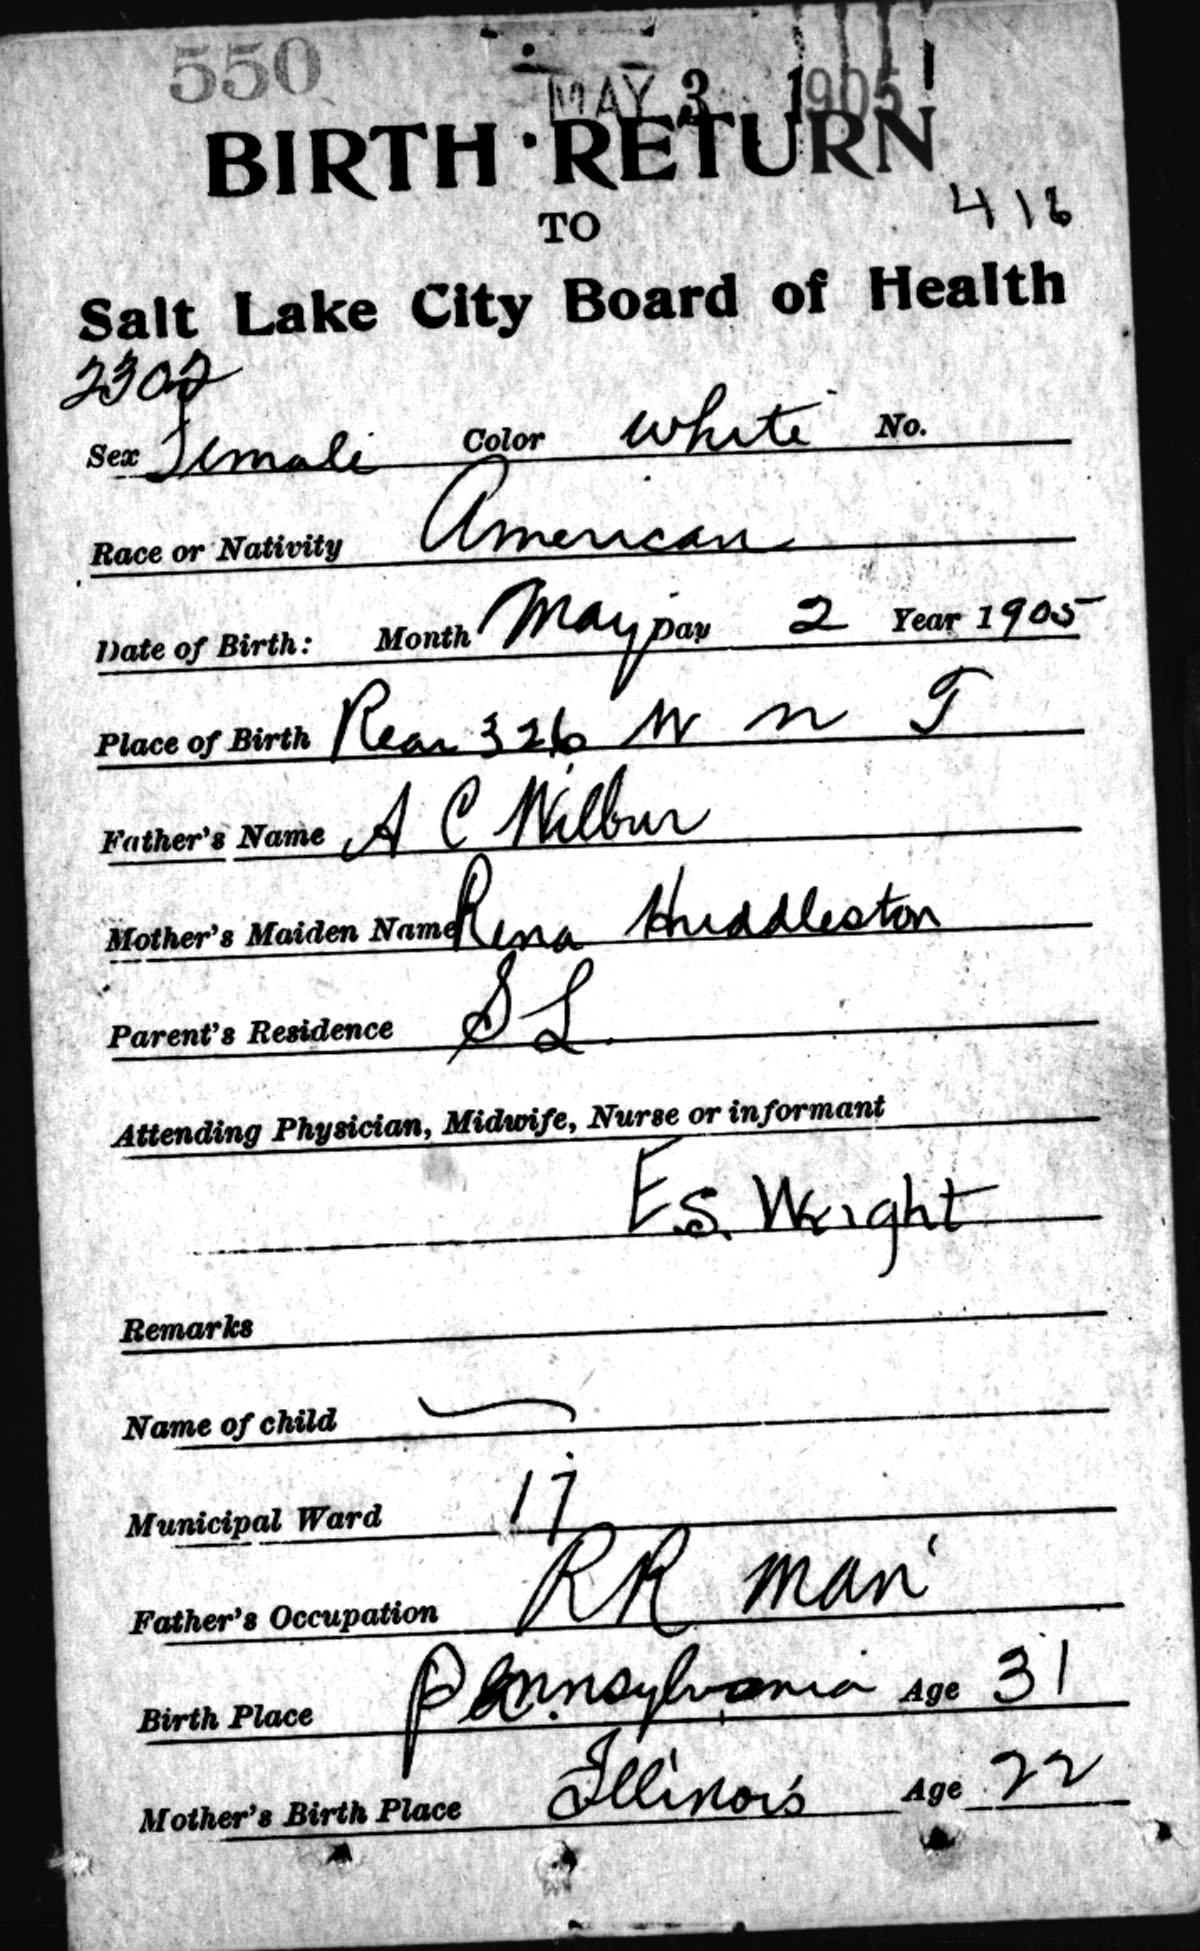 550
MAY 3 1905
BIRTH RETURN
TO
416
Salt Lake City Board of Health
2302
Sex Female Color white No.
Race or Nativity American
Date of Birth: Month May Day 2 Year 1905
Place of Birth Rear 326 W N T
Father's Name A C Wilbur
Mother's Maiden Name Rena Huddleston
Parent's Residence S L
Attending Physician, Midwife, Nurse or informant
E.S. Wright
Remarks
Name of child
Municipal Ward 17
Father's Occupation RR man
Birth Place Pennsylvania Age 31
Mother's Birth Place Illinois Age 22